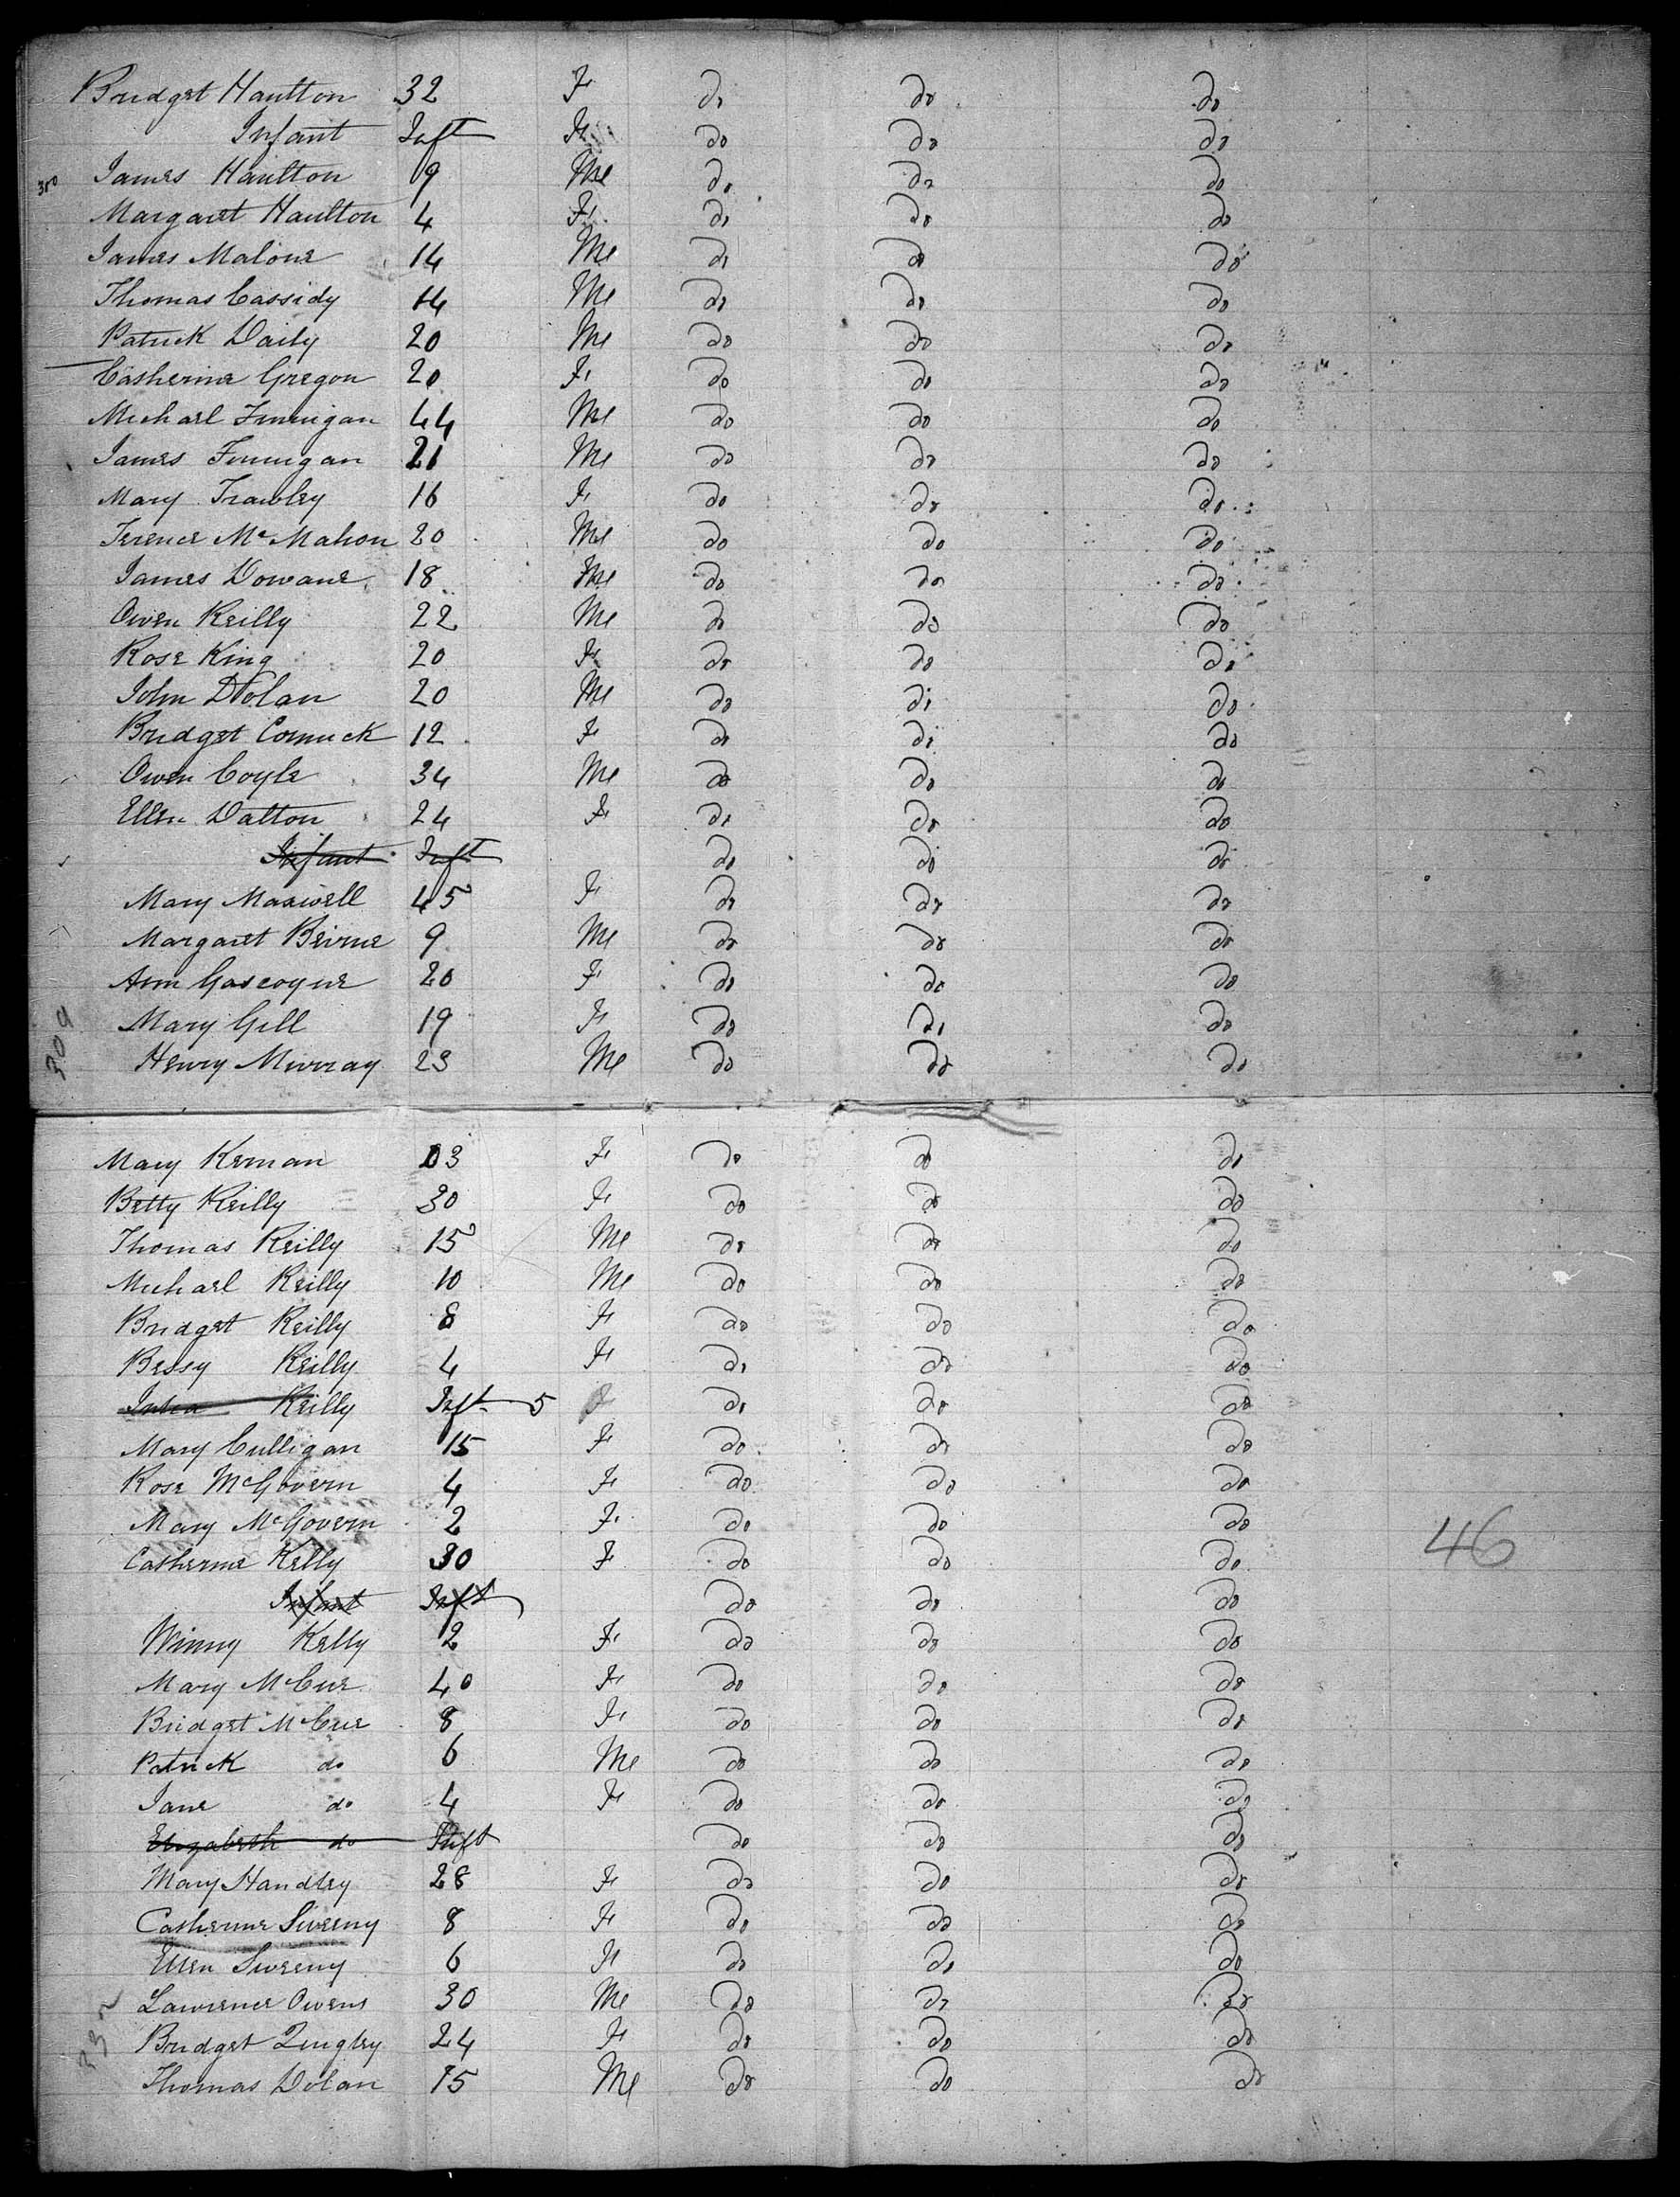 Bridget Haulton 32 F do do do
Infant Inft F do do do
350 James Haulton 9 Me do do do
Margaret Haulton 4 F do do do
James Malone 14 Me do do do
Thomas Cassidy 14 Me do do do
Patrick Daily 20 Me do do do
Catherine Gregon 20 F do do do
Michael Finnigan 44 Me do do do
James Finnigan 21 Me do do do
Mary Trawley 16 F do do do
Terence McMahon 20 Me do do do
James Dowane 18 Me do do do
Owen Reilly 22 Me do do do
Rose King 20 F do do do
John Dolan 20 Me do do do
Bridget Cormick 12 F do do do
Owen Coyle 34 Me do do do
Ellen Dalton 24 F do do do
Infant Inft do do do
Mary Maxwell 45 F do do do
Margaret Beirne 9 Me do do do
Ann Gascoyne 20 F do do do
Mary Gill 19 F do do do
309
Henry Murray 23 Me do do do
Mary Kernan 03 F do do do
Betty Reilly 30 F do do do
Thomas Reilly 15 Me do do do
Michael Reilly 10 Me do do do
Bridget Reilly 8 F do do do
Bessy Reilly 4 F do do do
Reilly Inft 5 do do do
Mary Culligan 15 F do do do
Rose McGovern 4 F do do do
Mary McGovern 2 F do do do
Catherine Kelly 30 F do do do
46
Infant Inft do do do
Winny Kelly 2 F do do do
Mary McCue 40 F do do do
Bridget McCue 8 F do do do
Patrick do 6 Me do do do
Jane do 4 F do do do
Elizabeth do Inft do do do
Mary Handley 28 F do do do
Catherine Sweeny 8 F do do do
Ellen Sweeny 6 F do do do
Lawrence Owens 30 Me do do do
Bridget 24 F do do do
Thomas Dolan 15 Me do do do